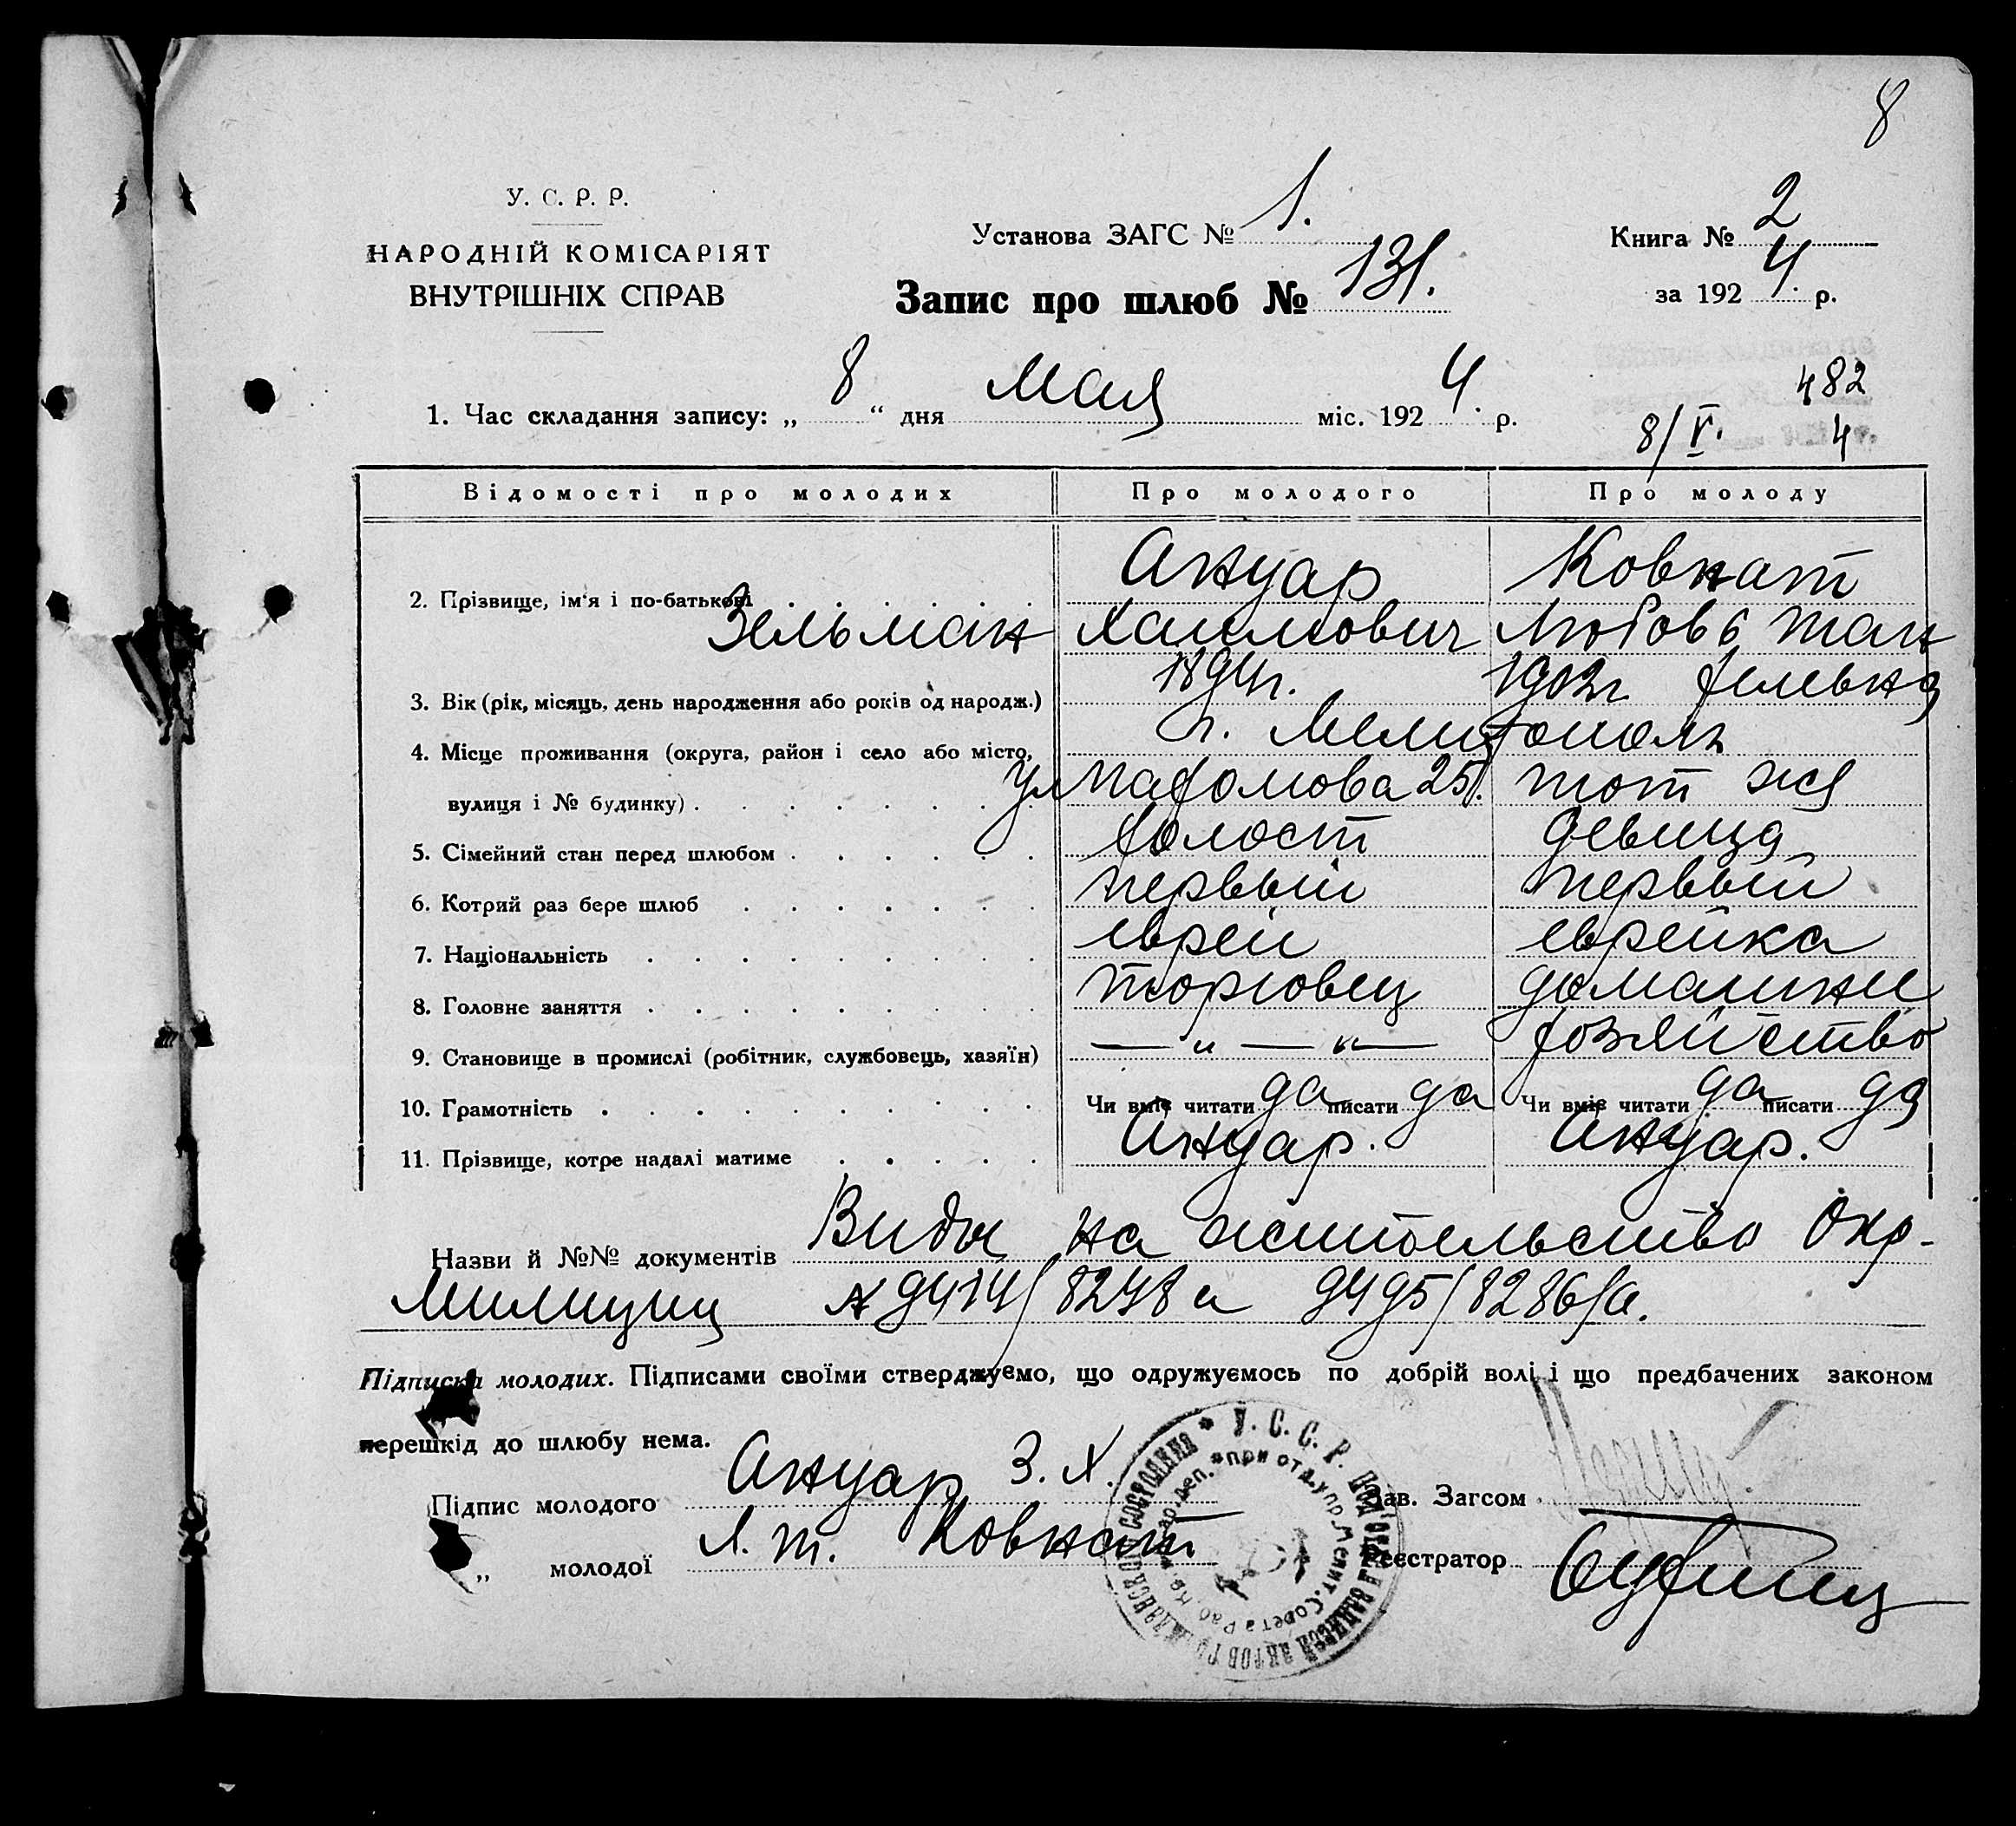 8
У. С. Р. Р.
НАРОДНІЙ КОМІСАРІЯТ
ВНУТРІШНІХ СПРАВ
Установа ЗАГС № 1.
Книга № 2
Запис про шлюб № 131.
за 1924. р.
1. Час складання запису: „ 8 “ дня Мая міс. 1924. р.
482
8/V. 4
Відомості про молодих Про молодого Про молоду
Ануар Ковнат
2. Прізвище, ім'я і по-батькові
Зельман Хаимович Любовь Тан
1894г. 1902г. хелевна
3. Вік (рік, місяць, день народження або років од народж.)
г. Мелитополь
4. Місце проживання (округа, район і село або місто,
вулиця і № будинку) Ул 25. тот же
5. Сімейний стан перед шлюбом холост девица
6. Котрий раз бере шлюб первый первый
7. Національність еврей еврейка
8. Головне заняття торговец домашнее
9. Становище в промислі (робітник, службовець, хазяїн) — „ — “ — хозяйство
10. Грамотність Чи вміє читати да писати да Чи вміє читати да писати да
11. Прізвище, котре надалі матиме Ануар. Ануар.
Назви й №№ документів Виды на жительство Окр-
Милиции № 9474/8248 и 9495/8286/а.
Підписка молодих. Підписами своїми стверджуємо, що одружуємось по добрій волі і що предбачених законом
перешкід до шлюбу нема.
Підпис молодого Ануар З. Х.
Зав. Загсом
„ молодої Л. Т. Ковнат
Реєстратор
У. С. С. Р. ПОД'ОТДЕЛ ЗАПИСЕЙ АКТОВ ГРАЖДАНСКОГО СОСТОЯНИЯ
при отд. упр. Мелит. Совета Раб. Кр. и деп.